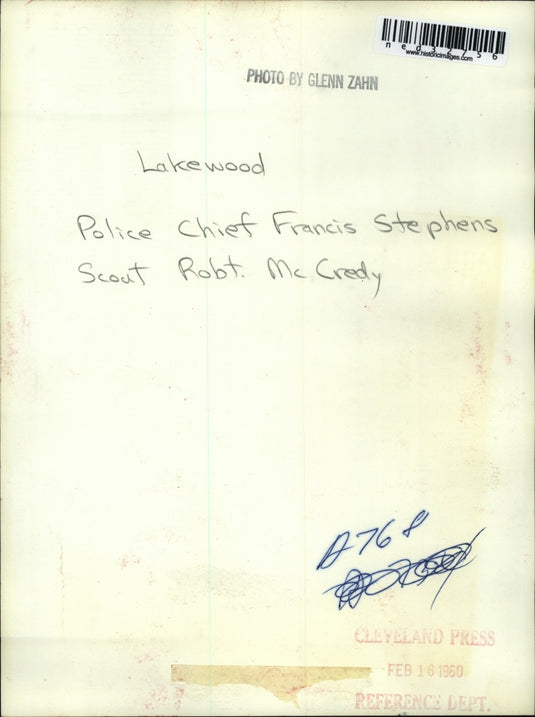 ned32756
www.historicimages.com
PHOTO BY GLENN ZAHN
Lakewood
Police Chief Francis Stephens
Scout Robt. McCredy
A768
CLEVELAND PRESS
FEB 16 1960
REFERENCE DEPT.